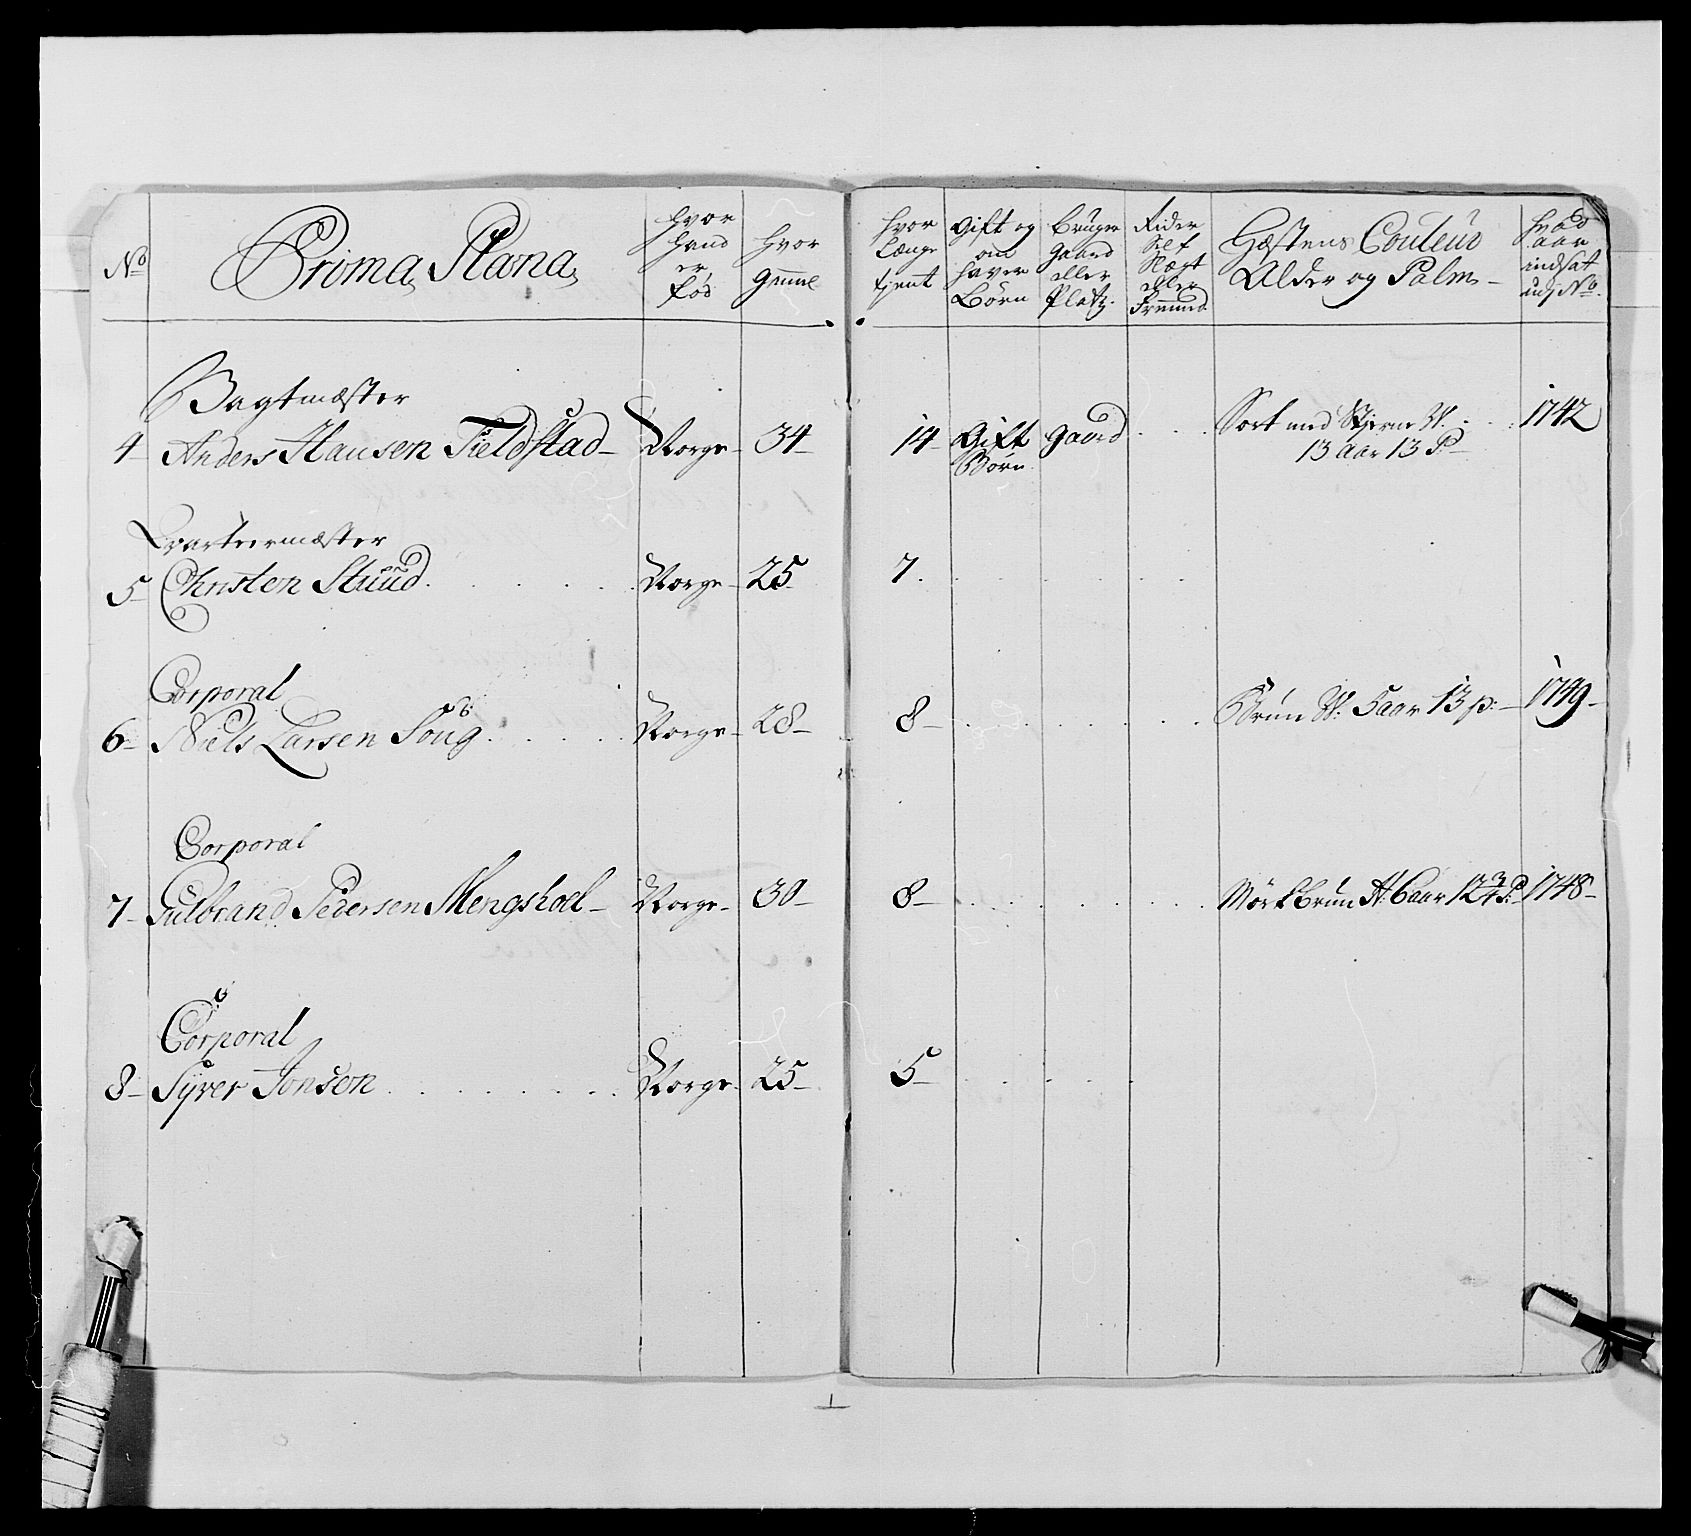 No
Prima Plana
hvor
hand
er
fød
hvor
gammel
hvor
længe
tjent
Gift og
om
haver
Børn
bruger
gaard
eller
Platz.
Rider
self
Nægt
eller
fremmed
Hæstens Couleur
Alder og Palm
hvad
aar
indsat
udj No
Vagtmæster
4 Anders Hansen Fieldstad Norge 34 14 Gift gaard Sort med Stierne V. 1742
Børn 13 aar 13 P
Qvarteermæster
5 Christen Stuud Norge 25 7
Corporal
6 Niels Larsen Soug Norge 28 8 Brun V. 5 aar 13 p: 1749
Corporal
7 Gulbrand Pedersen Mengshoel Norge 30 8 Mørkbrun H: 6 aar 12 3/4 P: 1748
Corporal
8 Syver Jonsen Norge 25 5
1